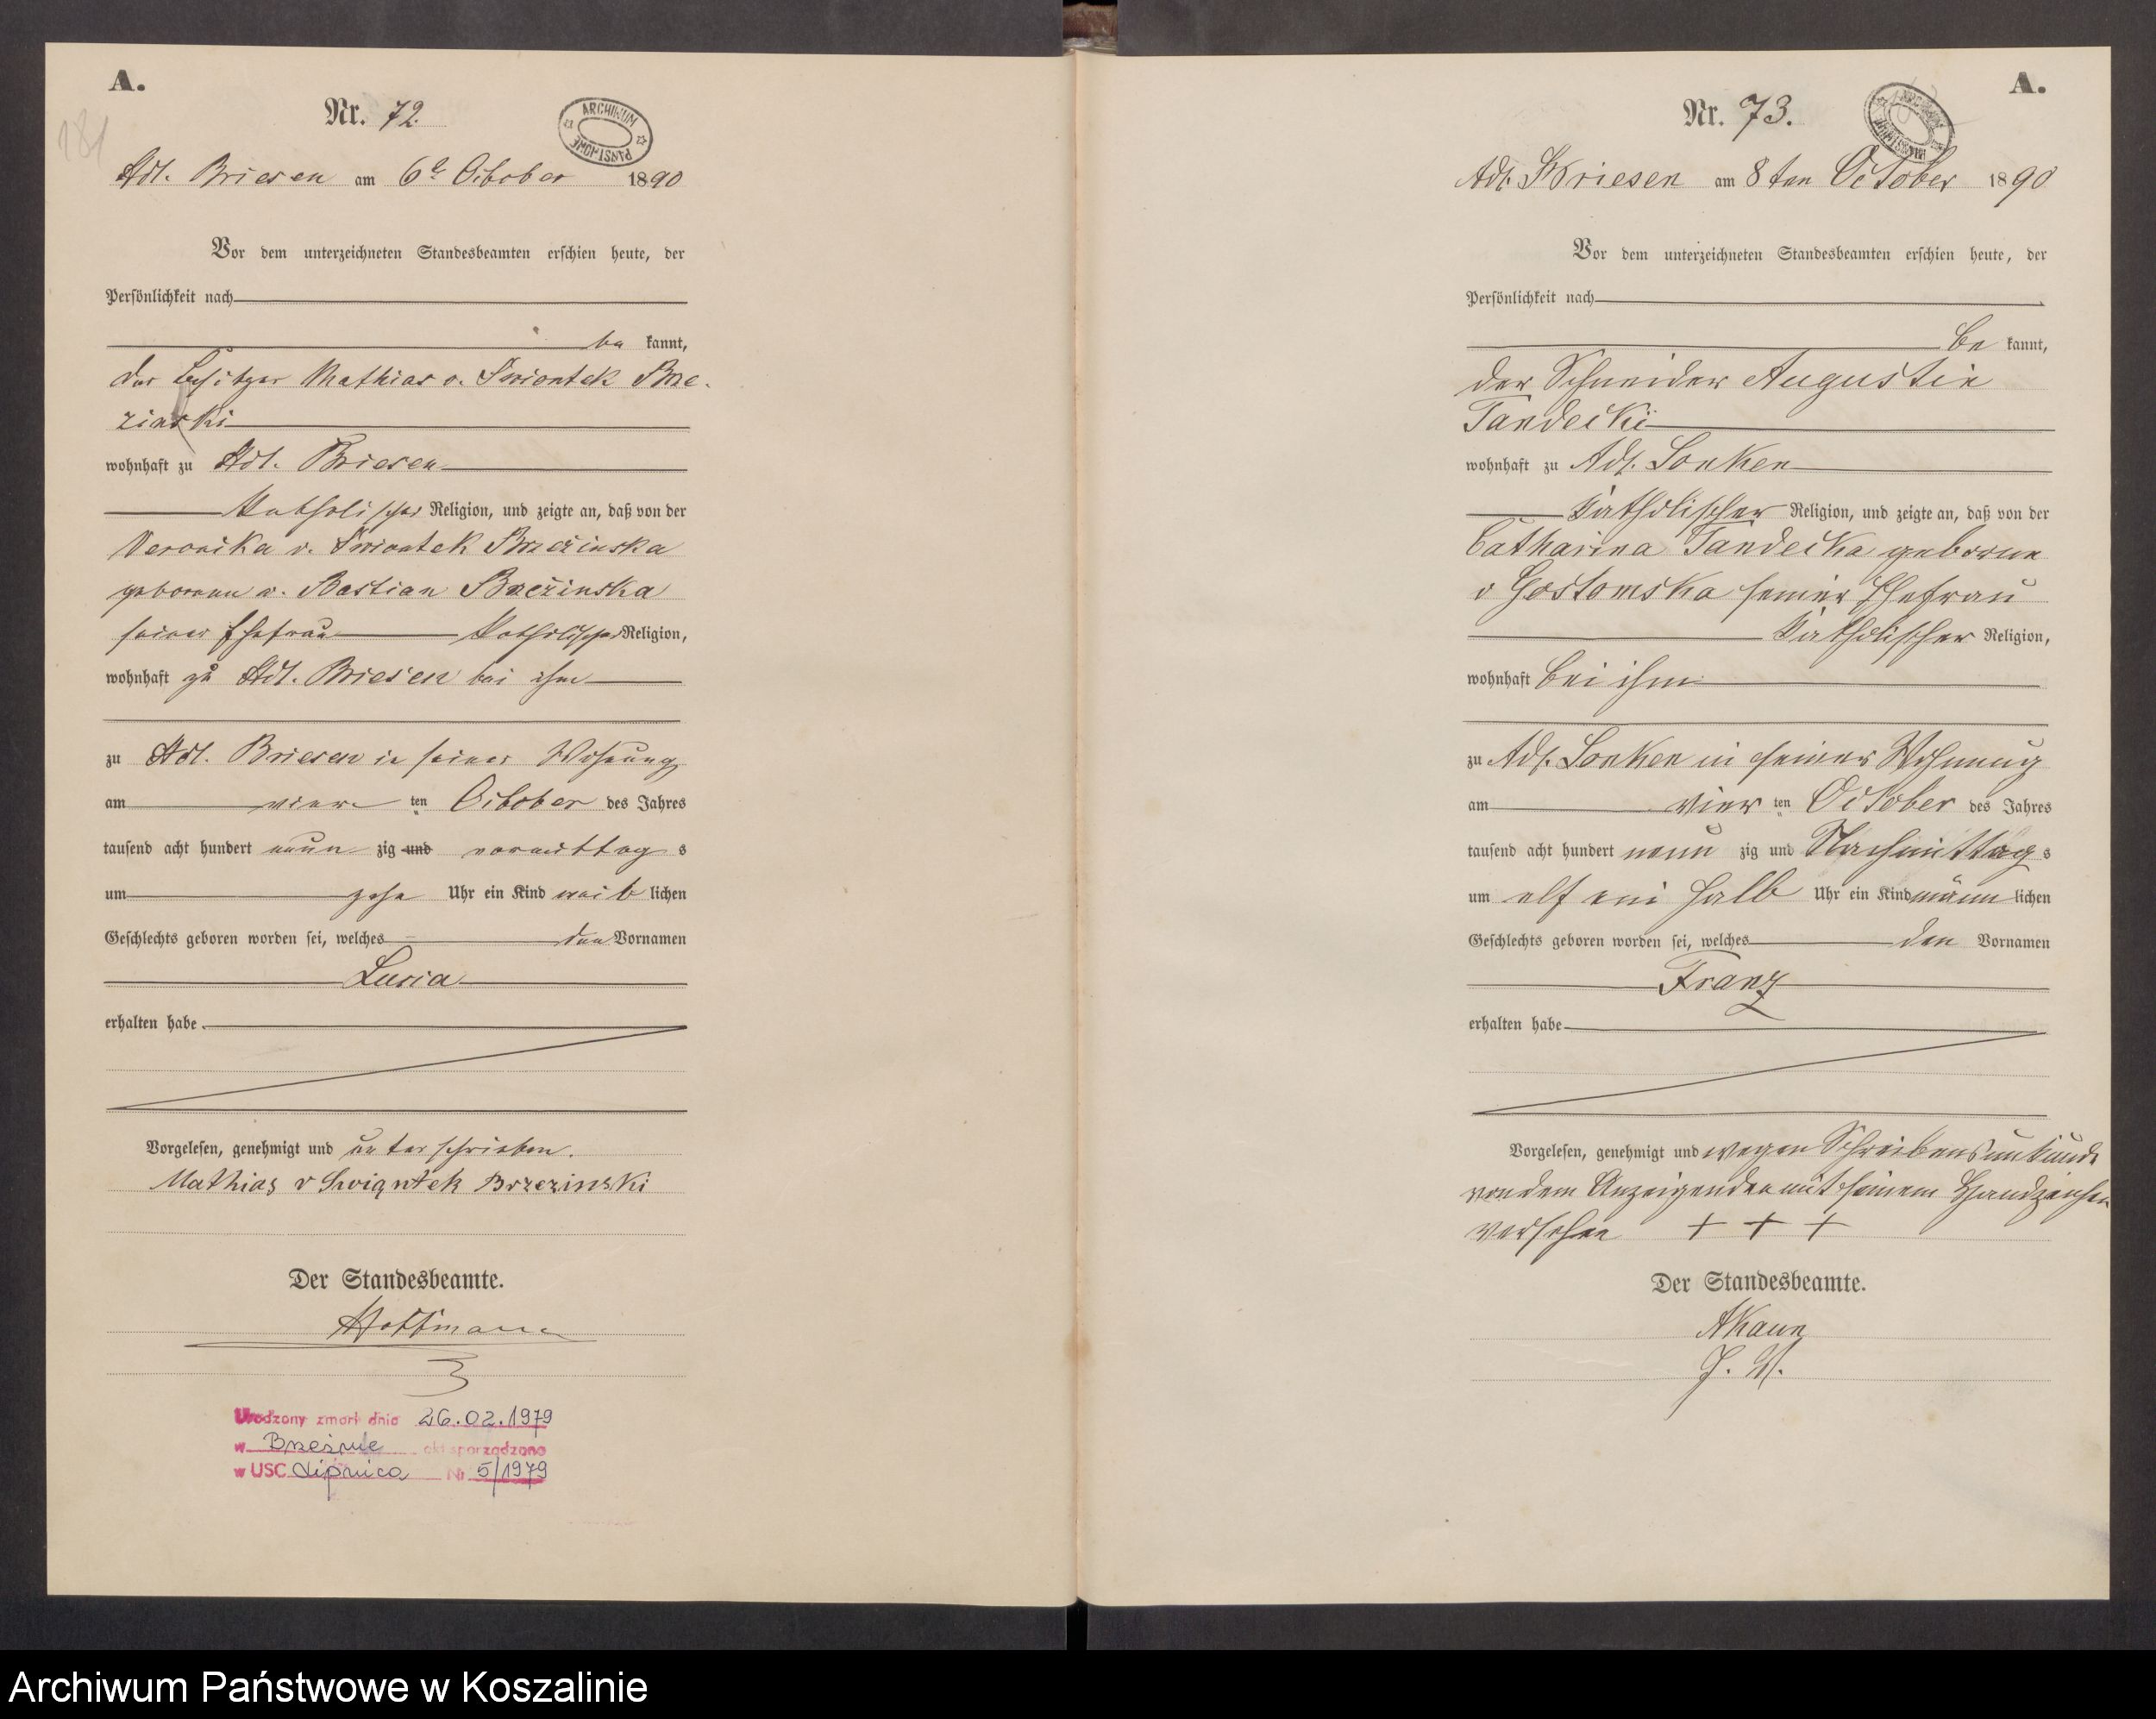 A.
181
Nr. 72.
ARCHIWUM PAŃSTWOWE
Adl. Briesen am 6t October 1890
Vor dem unterzeichneten Standesbeamten erschien heute, der
Persönlichkeit nach
be kannt,
der Besitzer Mathias v. Swiontek Brze-
zinski
wohnhaft zu Adl. Briesen
Katholischer Religion, und zeigte an, daß von der
Veronika v. Swiontek Brzezinska
geborenen v. Bastian Brzezinska
seiner Ehefrau Katholischer Religion,
wohnhaft zu Adl. Briesen bei ihm
zu Adl. Briesen in seiner Wohnung
am vier ten October des Jahres
tausend acht hundert neun zig und vormittag s
um zehn Uhr ein Kind weib lichen
Geschlechts geboren worden sei, welches den Vornamen
Lucia
erhalten habe.
Vorgelesen, genehmigt und unterschrieben.
Mathias v Swiąntek Brzezinski
Der Standesbeamte.
Hoffmann
Urodzony zmarł dnia 26.02.1979
w Brzeźnie akt sporządzono
w USC Lipnica Nr 5/1979
A.
Nr. 73.
ARCHIWUM PAŃSTWOWE
Adl. Briesen am 8ten October 1890
Vor dem unterzeichneten Standesbeamten erschien heute, der
Persönlichkeit nach
be kannt,
der Schneider Augustin
Tandecki
wohnhaft zu Adl. Lonken
Katholischer Religion, und zeigte an, daß von der
Catharina Tandecka geborene
v Gostomska seiner Ehefrau
Katholischer Religion,
wohnhaft bei ihm
zu Adl. Lonken in seiner Wohnung
am vier ten October des Jahres
tausend acht hundert neun zig und Nachmittag s
um elf ein halb Uhr ein Kind männ lichen
Geschlechts geboren worden sei, welches den Vornamen
Franz
erhalten habe
Vorgelesen, genehmigt und wegen Schreibensunkunde
von dem Anzeigenden mit seinem Handzeichen
versehen + + +
Der Standesbeamte.
AKaun
J. V.
Archiwum Państwowe w Koszalinie